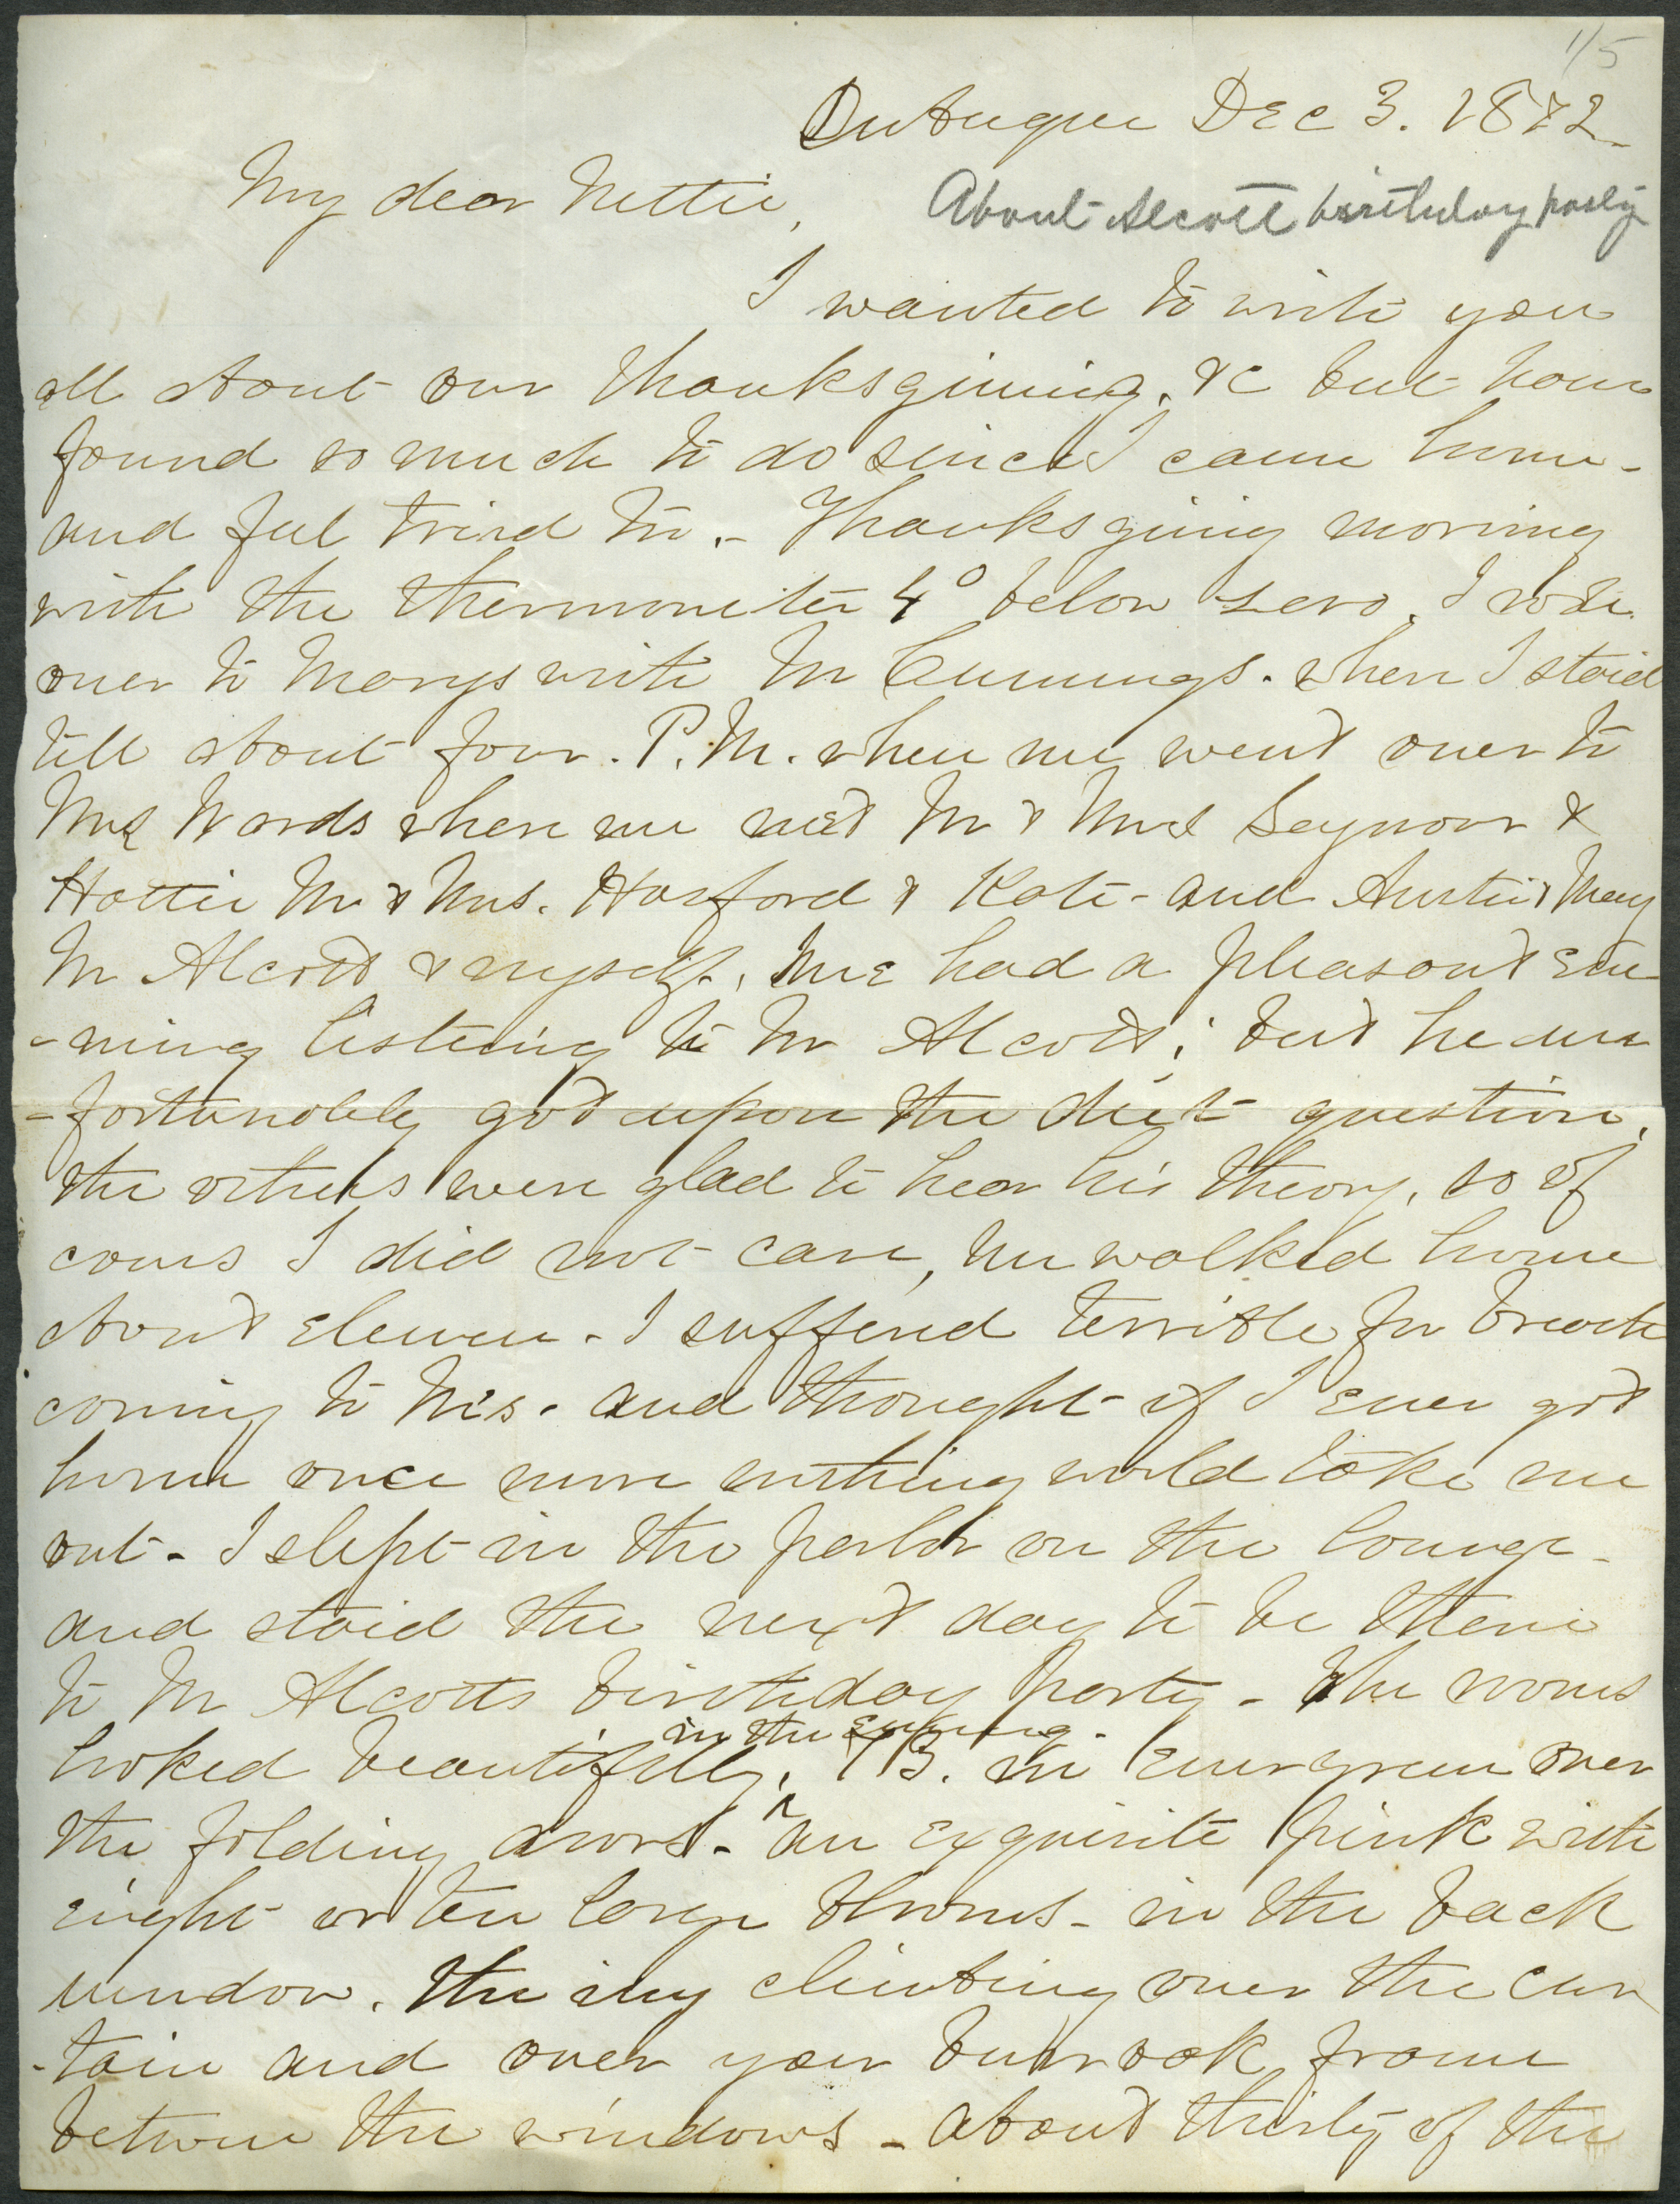 1/5
DuBuque Dec 3. 1872
My dear Nettie,
About Alcott birthday party
I wanted to write you
all about our Thanksgiving, &c but have
found so much to do since I came home -
and feel tried to. - Thanksgiving morning
with the thermometer 4° below zero, I rode
over to Marys with Mr Cummings. where I staid
till about four. P.M. when we went over to
Mrs Wards where we met Mr & Mrs Seymour &
Hattie Mr & Mrs. Horsford & Kate - and Austin & Mary
Mr Alcott & myself. We had a pleasant eve
-ning listening to Mr Alcott; but he un
-fortunately got upon the diet question,
the others were glad to hear his theory, so of
cours I did not care, we walked home
about eleven - I sufferd terrible for breath
coming to M's. and thought if I ever got
home once more nothing would take me
out - I slept in the parlor on the lounge -
and staid the next day to be there
to Mr Alcotts birthday party - The rooms
in the evening -
looked beautifully, 73. in evergreen over
the folding doors. - an exquisite pink with
eight or ten large blooms - in the back
window, the ivy climbing over the cur
-tain and over your frame
between the windows - about thirty of the